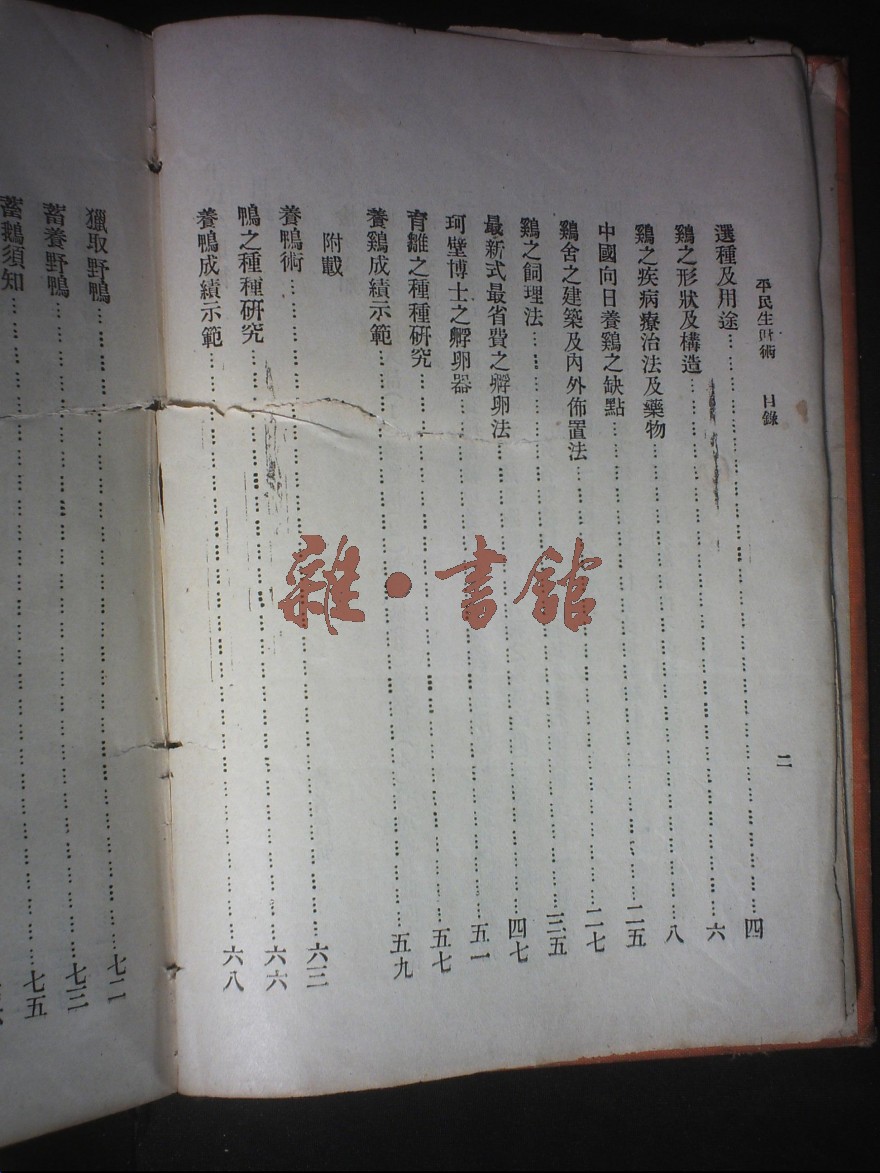 平民生術 目錄 二
選種及用途……四
鷄之形狀及構造……六
鷄之疾病療治法及藥物……八
中國向日養鷄之缺點……二五
鷄舍之建築及內外佈置法……二七
鷄之飼理法……三五
最新式最省費之孵卵法……四七
珂壁博士之孵卵器……五一
育雛之種種研究……五七
養鷄成績示範……五九
附載
養鴨術……六三
鴨之種種研究……六六
養鴨成績示範……六八
獵取野鴨……七二
蓄養野鴨……七三
蓄鵝須知……七五
雜·書館